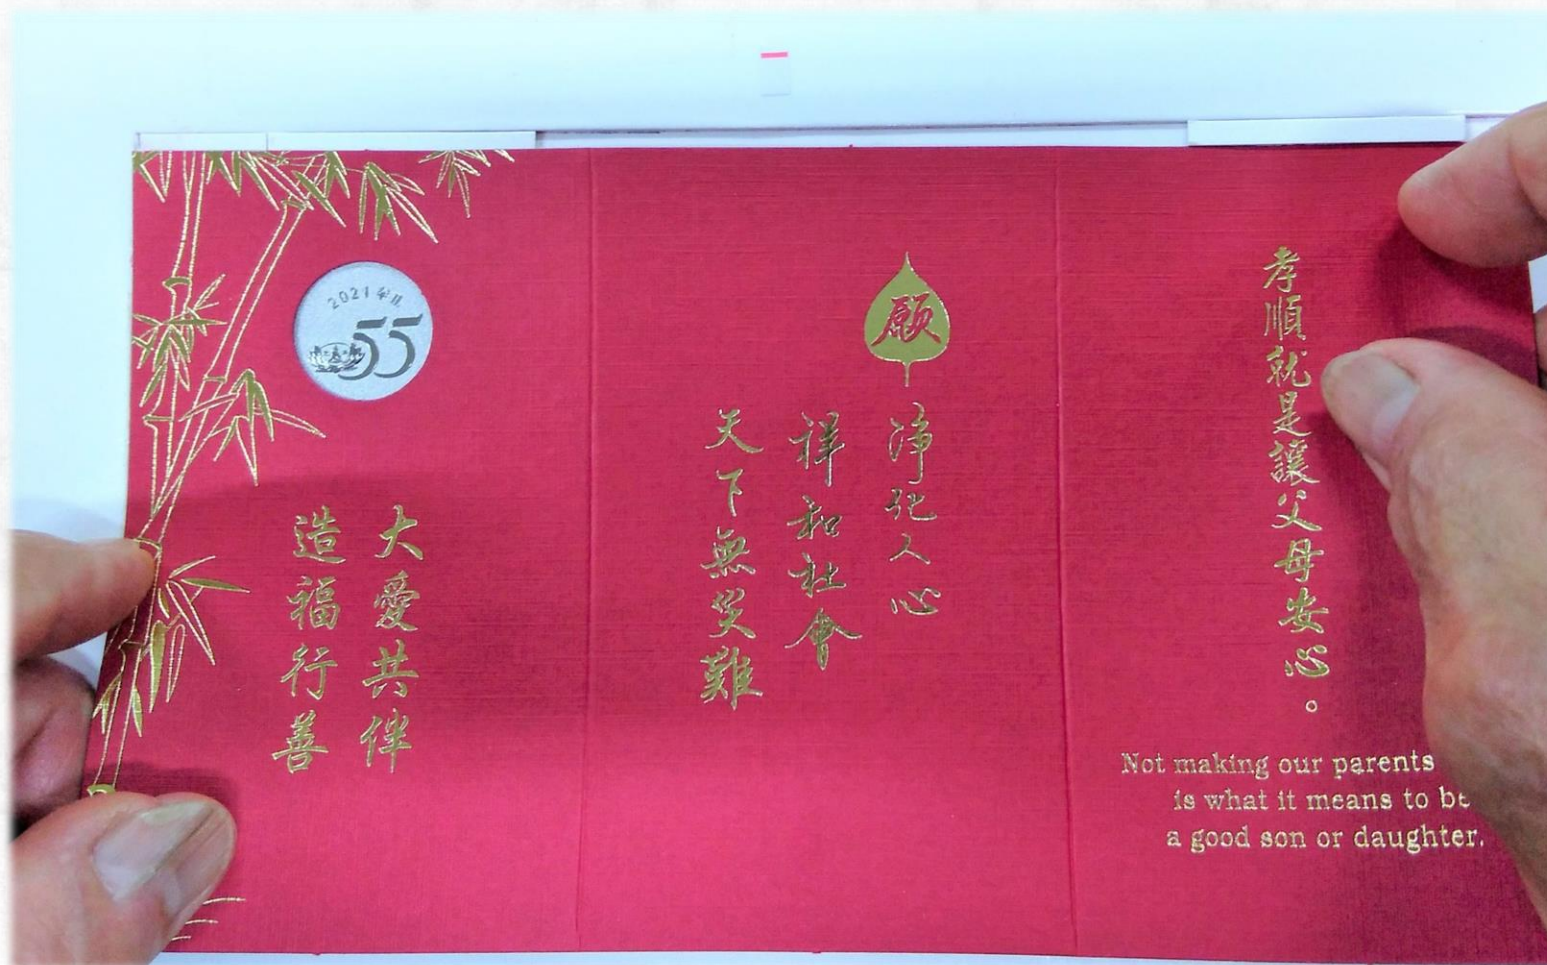 2021年
55
大愛共伴
造福行善
願
淨化人心
祥和社會
天下無災難
孝順就是讓父母安心。
Not making our parents
is what it means to be
a good son or daughter.